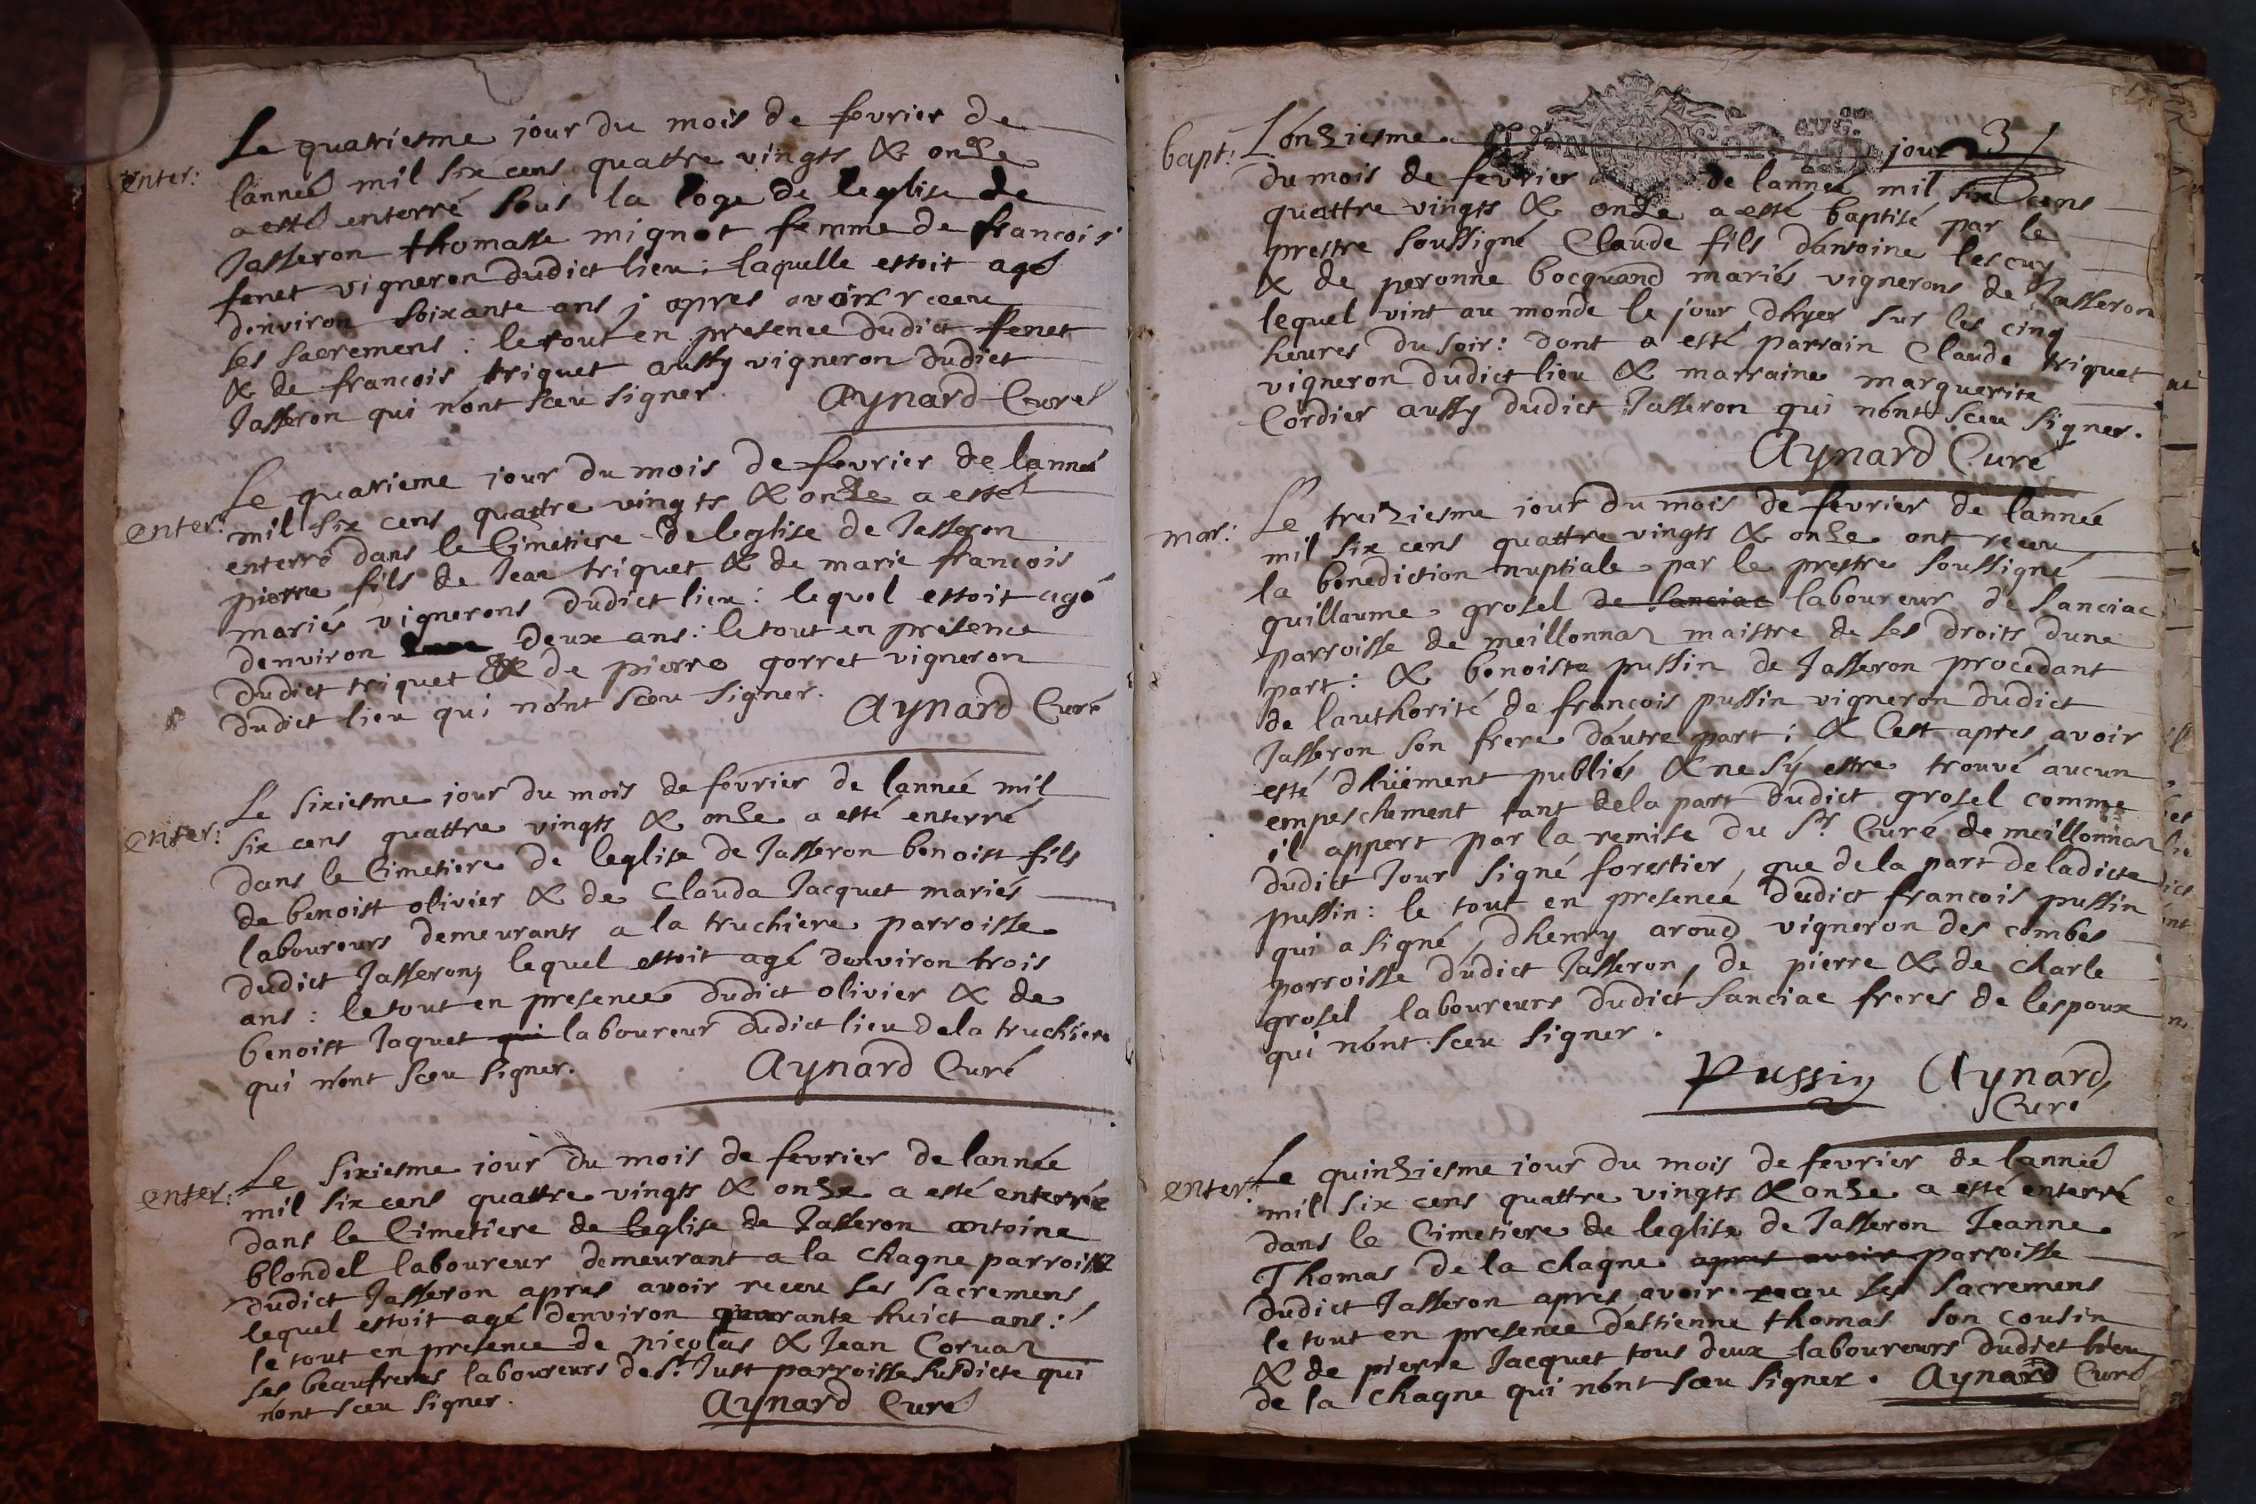 enter:
Le quatriesme jour du mois de fevrier de
lanneé mil six cens quattre vingts & onze
a esté enterré sous la loge de leglise de
Jasseron thomasse mignot femme de francois
fenet vigneron dudict lieu ; laquelle estoit agé
denviron soixante ans ; apres avoir receu
ses sacremens : le tout en presence dudict fenet
& de francois triquet aussy vigneron dudict
Jasseron qui n'ont sceu signer.
Aynard Curé
enter:
Le quatrieme jour du mois de fevrier de lanneé
mil six cens quattre vingts & onze a esté
enterré dans le Cimetiere de leglise de Jasseron
pierre fils de Jean triquet & de marie francois
mariés vignerons dudict lieu : lequel estoit agé
denviron deux ans : le tout en presence
dudict triquet & de pierre gorret vigneron
dudict lieu qui n'ont sceu signer.
Aynard Curé
enter:
Le sixiesme jour du mois de fevrier de lanneé mil
six cens quattre vingts & onze a esté enterré
dans le Cimetiere de leglise de Jasseron benoist fils
de benoist olivier & de Clauda Jacquet mariés
laboureurs demeurants a la truchiere parroisse
dudict Jasseron, lequel estoit agé denviron trois
ans : le tout en presence dudict olivier & de
benoist Jaquet qui laboureur dudict lieu dela truchiere
qui n'ont sceu signer.
Aynard Curé
enter:
Le sixiesme jour du mois de fevrier de lannée
mil six cens quattre vingts & onze a esté enterré
dans le Cimetiere de leglise de Jasseron antoine
blondel laboureur demeurant a la chagne parroisse
dudict Jasseron apres avoir receu ses sacremens
lequel estoit agé denviron quarante huict ans :
le tout en presence de nicolas & Jean Corvaz
ses beaufreres laboureurs de St Just parroisse susdicte qui
n'ont sceu signer.
Aynard Curé
3
bapt:
L'onziesme jour
du mois de fevrier de lanneé mil six cens
quattre vingts & onze a esté baptisé par le
prestre soussigné Claude fils d'antoine lescuy
& de peronne bocquand mariés vignerons de Jasseron
lequel vint au monde le jour dhyer sur les cinq
heures du soir : dont a esté parrain Claude triquet
vigneron dudict lieu & marraine marguerite
Cordier aussy dudict Jasseron qui n'ont sceu signer.
Aynard Curé
mar:
Le treiziesme jour du mois de fevrier de lannée
mil six cens quattre vingts & onze ont receu
la benediction nuptiale par le prestre soussigné
guillaume grosel de Sanciac laboureur de Sanciac
parroisse de meillonnaz maistre de ses droits d'une
part : & benoiste pussin de Jasseron procedant
de lauthorité de francois pussin vigneron dudict
Jasseron son frere d'autre part ; & c'est apres avoir
esté dhüement publiés & ne s'y estre trouvé aucun
empeschement tant dela part dudict grosel comme
il appert par la remise du Sr Curé de meillonnaz
dudict Jour signé forestier, que dela part de ladicte
pussin : le tout en presence dudict francois pussin
qui a signé, dhenry aroud vigneron des combes
parroisse dudict Jasseron, de pierre & de charle
grosel laboureurs dudict Sanciac freres de lespoux
qui n'ont sceu signer.
Pussin Aynard
Curé
enter:
Le quinziesme jour du mois de fevrier de lanneé
mil six cens quattre vingts & onze a esté enterré
dans le Cimetiere de leglise de Jasseron Jeanne
Thomas de la chagne apres avoir parroisse
dudict Jasseron apres avoir receu ses sacremens
le tout en presence d'estienne thomas son cousin
& de pierre Jacquet tous deux laboureurs dudict lieu
de la chagne qui n'ont sceu signer. Aynard Curé